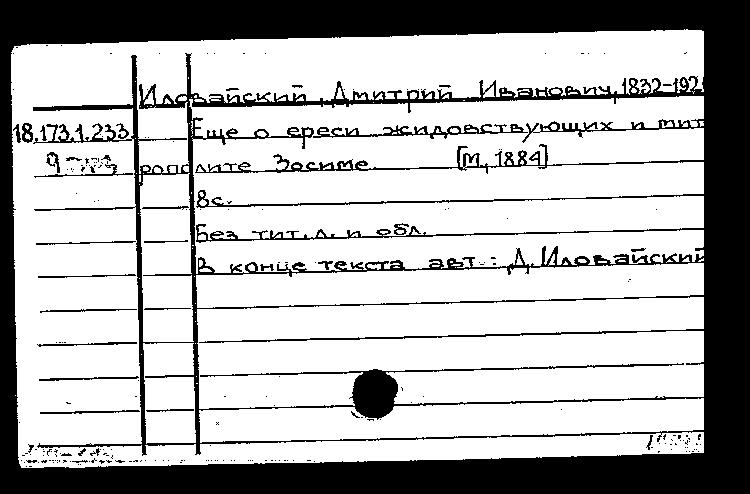 Иловайский, Дмитрий Иванович, 1832-192
18.173.1.233. Еще о ереси жидовствующих и мит
рополите Зосиме. [М, 1884]
8с.
Без тит. л. и обл.
В конце текста авт.: Д. Иловайский